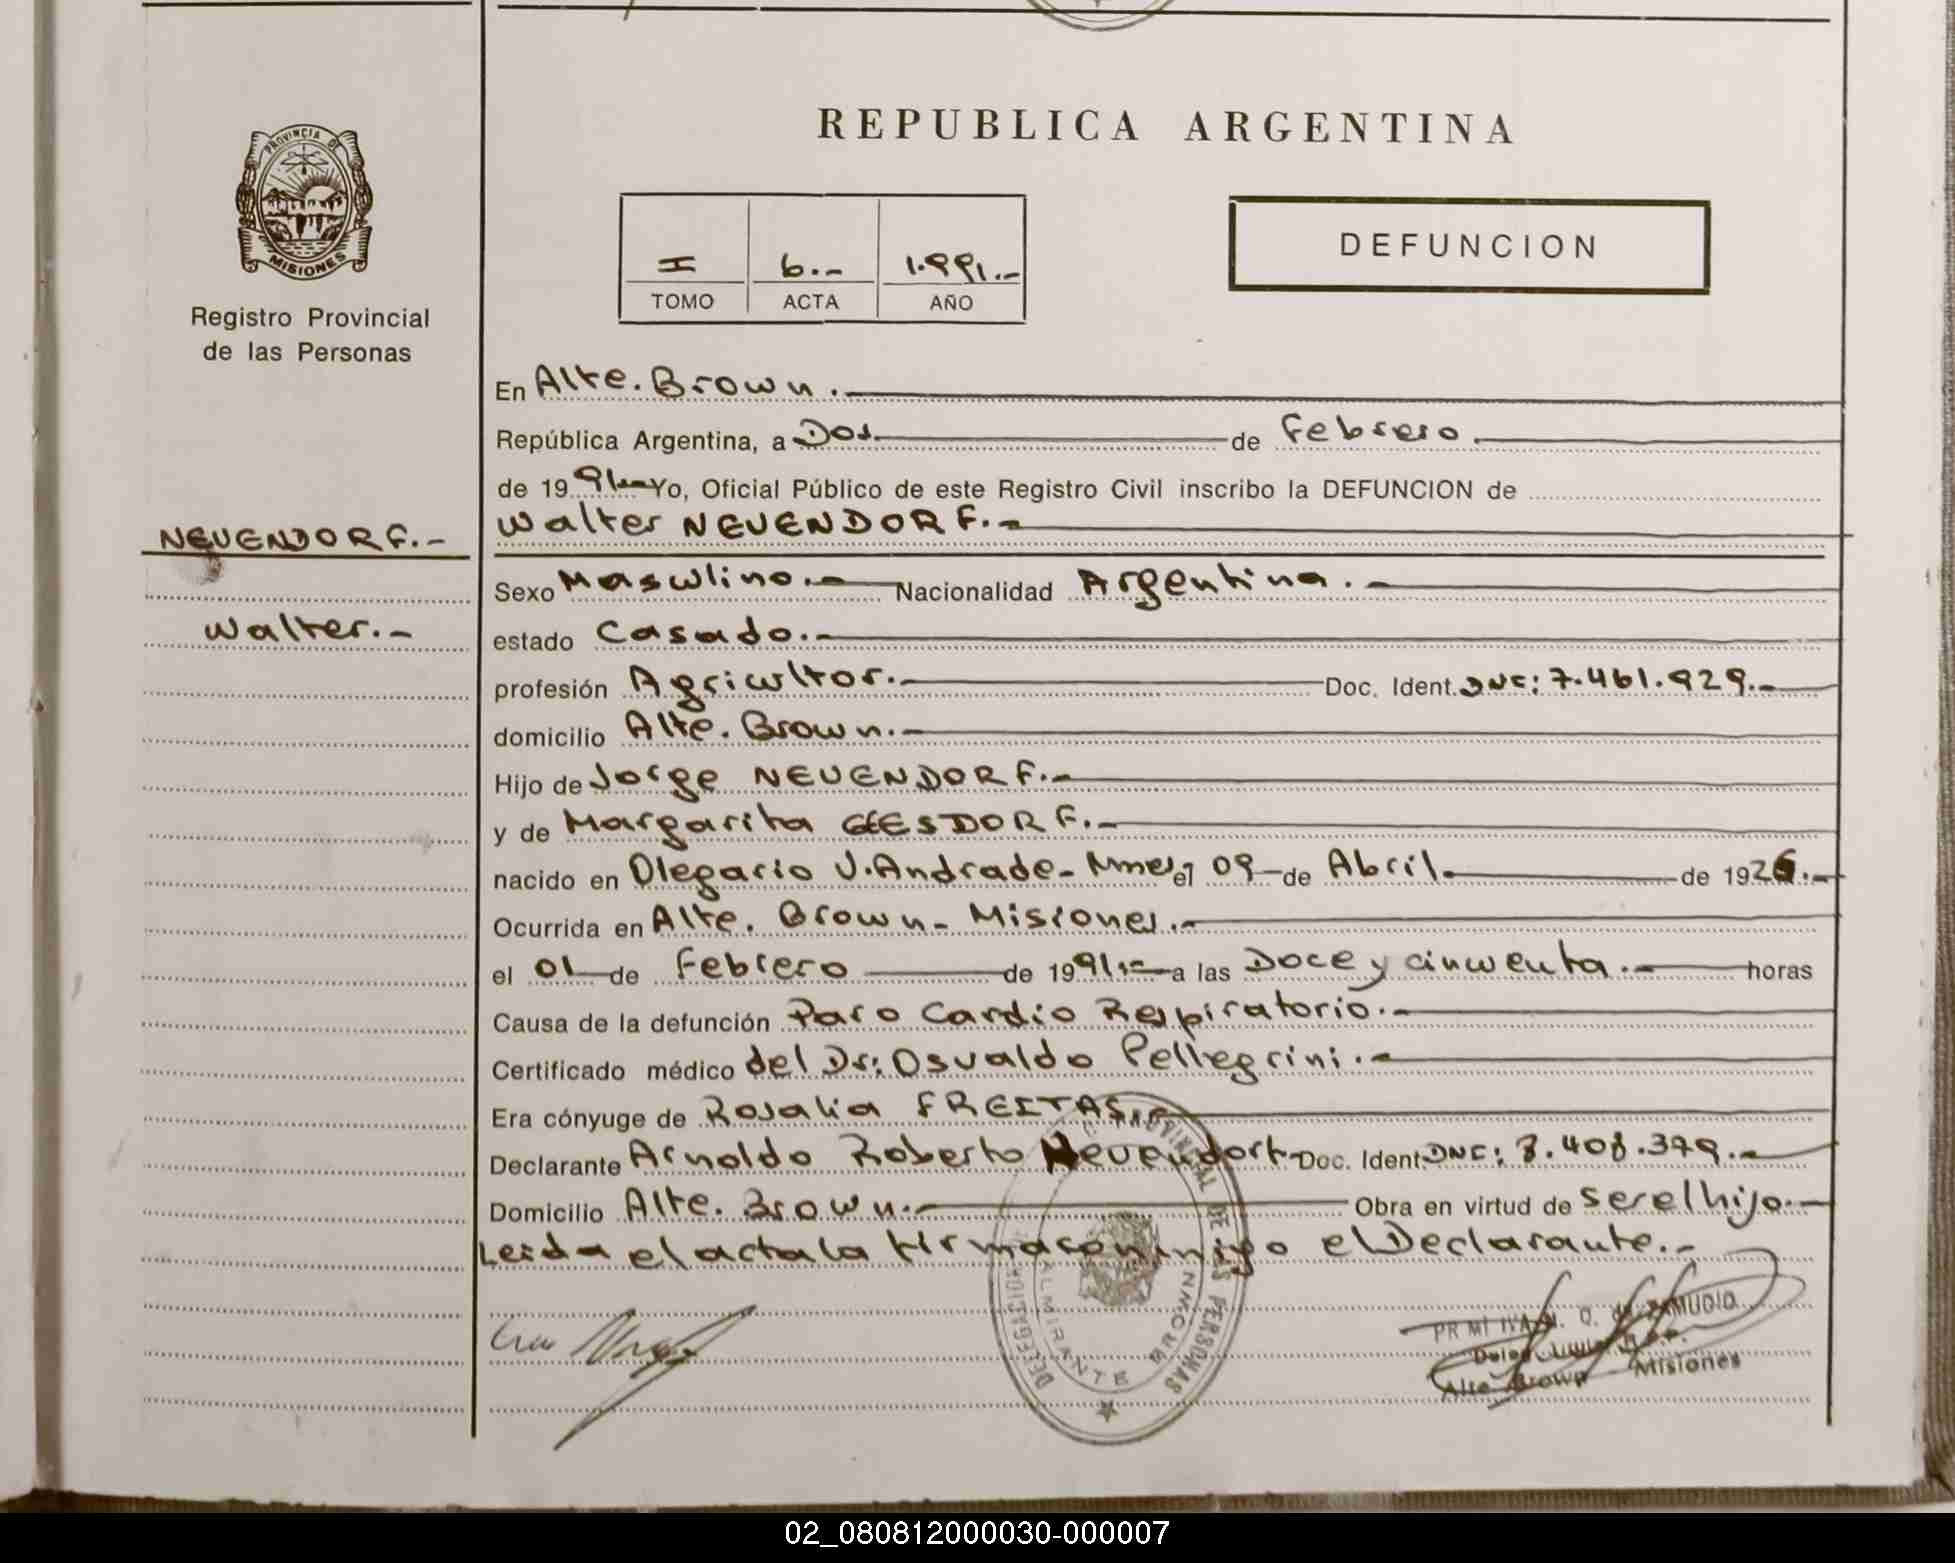 REPUBLICA ARGENTINA
PROVINCIA DE
MISIONES
Registro Provincial
de las Personas
I 6.- 1.991.-
TOMO ACTA AÑO
DEFUNCION
En Alte. Brown.
República Argentina, a Dos de Febrero.
de 1991.- Yo, Oficial Público de este Registro Civil inscribo la DEFUNCION de
NEUENDORF.-
Walter NEUENDORF.-
Sexo Masculino.- Nacionalidad Argentina.-
Walter.-
estado Casado.-
profesión Agricultor.- Doc. Ident. DNI: 7.461.929.-
domicilio Alte. Brown.-
Hijo de Jorge NEUENDORF.-
y de Margarita GEESDORF.-
nacido en Olegario V. Andrade- Mnes el 09 de Abril. de 1926.-
Ocurrida en Alte. Brown- Misiones.-
el 01 de Febrero de 1991.- a las Doce y cincuenta.- horas
Causa de la defunción Paro Cardio Respiratorio.-
Certificado médico del Dr: Osvaldo Pellegrini.-
Era cónyuge de Rosalia FREITAS.-
Declarante Arnoldo Roberto Neuendorf- Doc. Ident. DNI: 8.408.379.-
Domicilio Alte. Brown.- Obra en virtud de ser el hijo.-
Leida el acta la firma conmigo el Declarante.-
PROVINCIAL DE LAS PERSONAS
DELEGACION
ALMIRANTE BROWN
ZAMUDIO
Alte Brown - Misiones
02_080812000030-000007